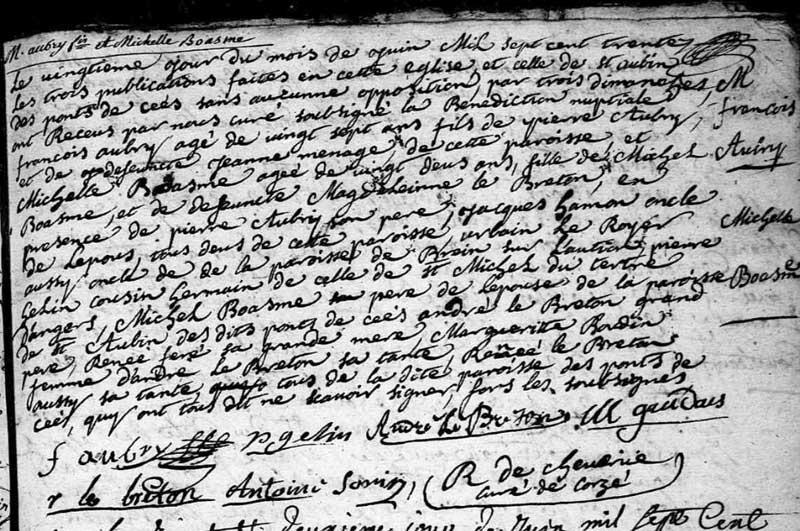 M. aubry fois et Michelle Boasme
Le vingtieme jour du mois de juin Mil sept cent trente
les trois publications faites en cette eglise et celle de st aubin
des ponts de ceés sans aucunne opposition par trois dimanches,
ont Receus par nous curé soubsigné la Benediction nuptiale
françois aubry agé de vingt sept ans fils de pierre Aubry,
et de deffeuncte Jeanne menage de cette paroisse et
Michelle Boasme agée de vingt deus ans, fille de Michel
Boasme, et de deffeuncte Magdeleinne le Breton, en
presence de pierre Aubry son pere, Jacques hamon oncle
de Lepous, tous deus de cette paroisse, urbain Le Royer
aussy oncle de de la paroisse de Brein sur l'aution pierre
Gelin cousin Germain de celle de st Michel du tertre
d'angers, Michel Boasme pere de lepouse de la paroisse
de st Aubin des dits ponts de ceés andré le Breton grand
pere, Renée seré sa grande mere, Margueritte Boudin
femme d'andré Le Breton sa tante, Renée le Breton
aussy sa tante tous de la dite paroisse des ponts de
ceés, quy ont tous dit ne scavoir signer, fors les soubsignés
M
françois
Aubry
Michelle
Boasme
f aubry p gelin André Le Breton M gaudais
r le breton Antoine Sorin, R de cheverie
curé de corzé
deuxieme jour de Juin mil sept Cent